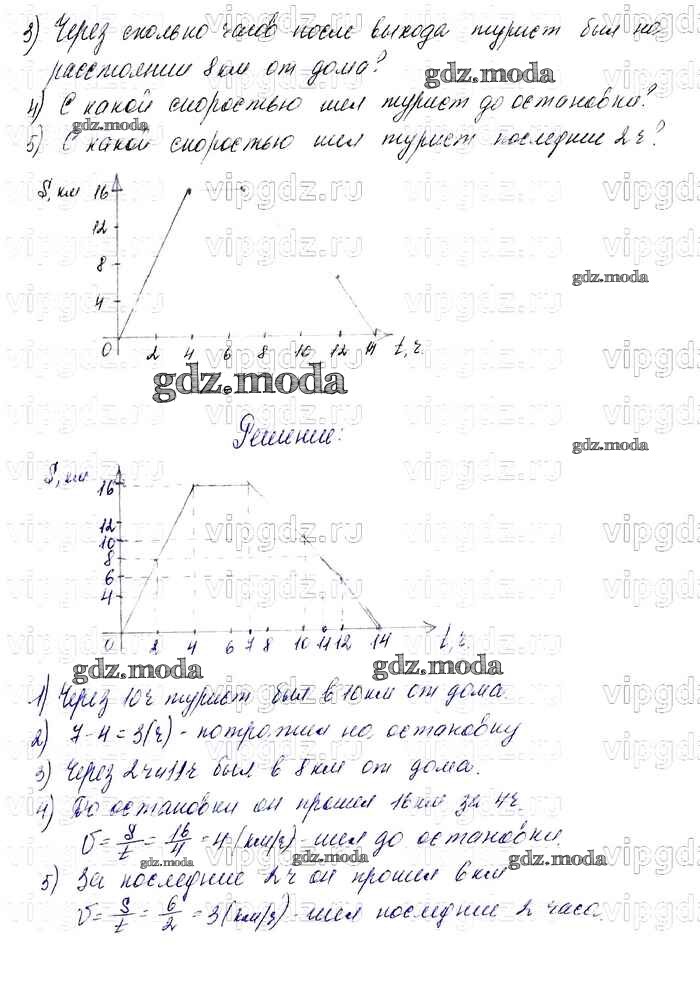 3) Через сколько часов после выхода турист был на
расстоянии 8 км от дома?
gdz.moda
4) С какой скоростью шел турист до остановки?
gdz.moda
5) С какой скоростью шел турист последние 2 ч?
S, км
16
12
8
4
0 2 4 6 8 10 12 14 t, ч.
gdz.moda
gdz.moda
Решение:
gdz.moda
S, км
16
12
10
8
6
4
0 2 4 6 7 8 10 11 12 14 t, ч.
gdz.moda gdz.moda
1) Через 10 ч турист был в 10 км от дома.
2) 7-4=3(ч) - потратил на остановку
3) Через 2 ч и 11 ч был в 8 км от дома.
4) До остановки он прошел 16 км за 4 ч.
V = S/t = 16/4 = 4 (км/ч) - шел до остановки.
gdz.moda gdz.moda gdz.moda
5) За последние 2 ч он прошел 6 км
V = S/t = 6/2 = 3 (км/ч) - шел последние 2 часа.
vipgdz.ru